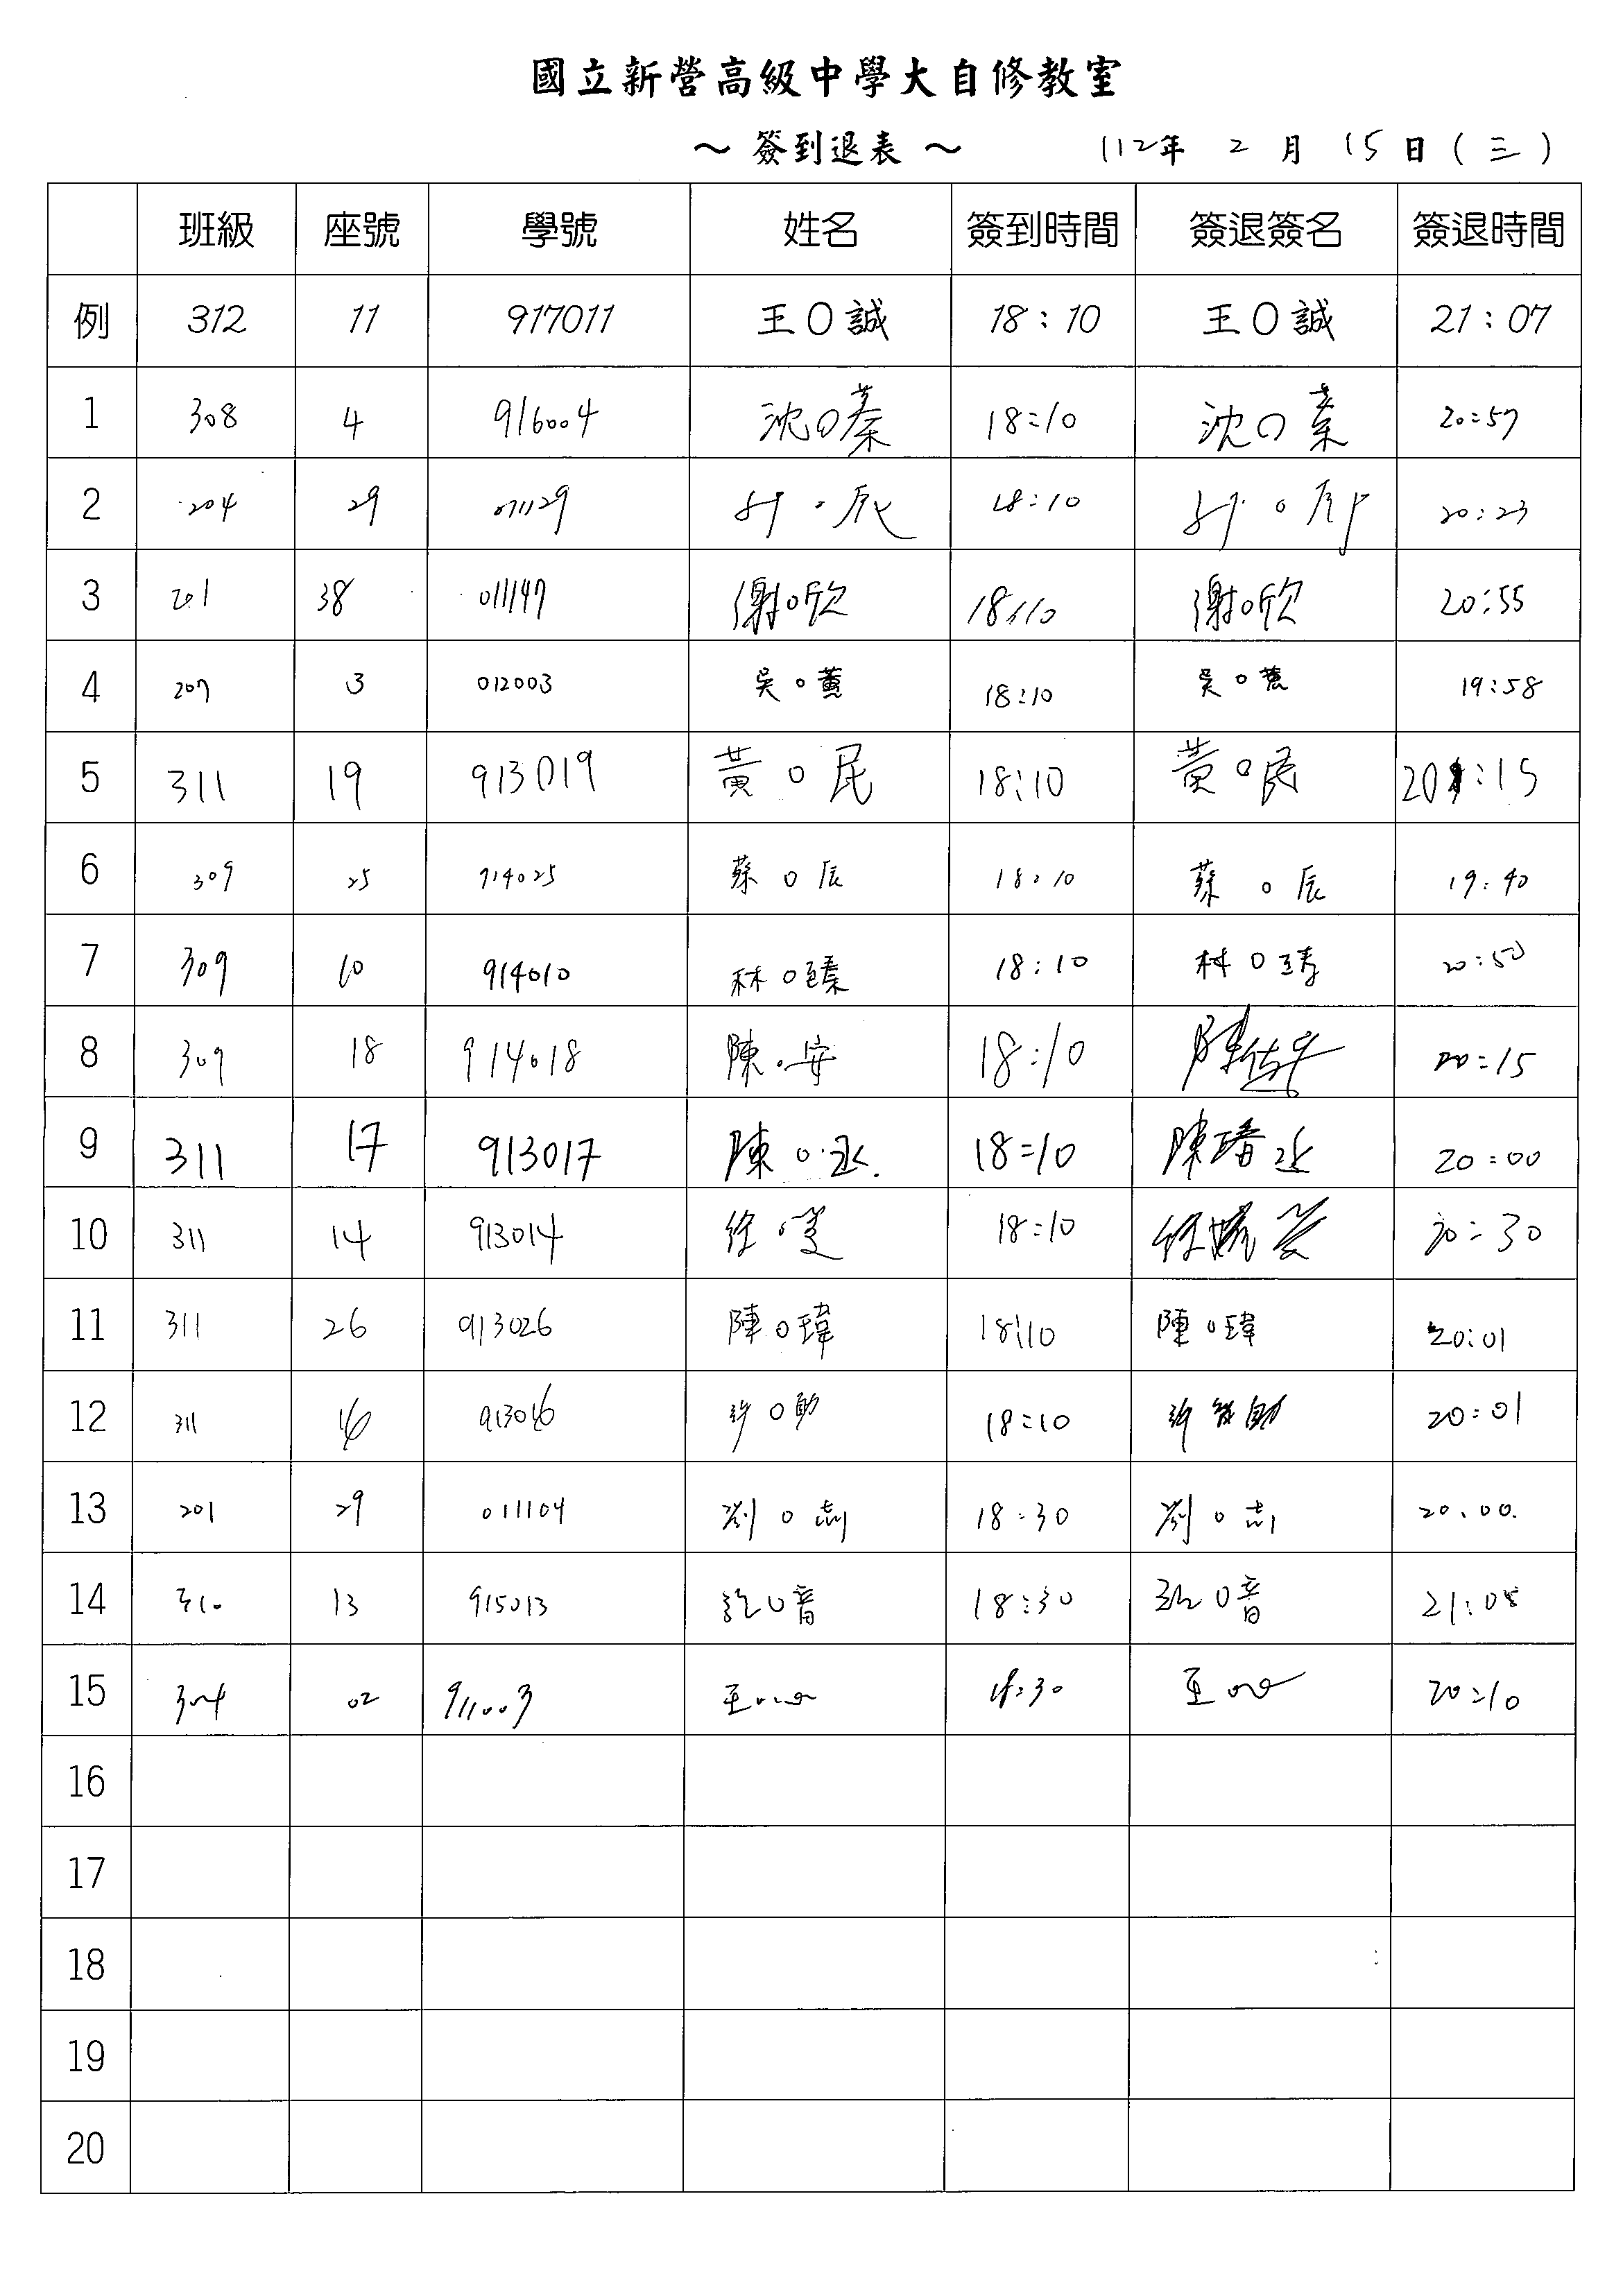 國立新營高級中學大自修教室
～ 簽到退表 ～ 112年 2 月 15 日 ( 三 )
班級 座號 學號 姓名 簽到時間 簽退簽名 簽退時間
例 312 11 917011 王O誠 18:10 王O誠 21:07
1 308 4 916004 沈O蓁 18:10 沈O蓁 20:57
2 204 29 011129 18:10 20:23
3 201 38 011147 謝O欣 18:10 謝O欣 20:55
4 207 3 012003 吳O薰 18:10 吳O薰 19:58
5 311 19 913019 黃O民 18:10 黃O民 20:15
6 309 25 914025 蔡O辰 18:10 蔡O辰 19:40
7 309 10 914010 林O臻 18:10 林O臻 20:50
8 309 18 914018 陳O安 18:10 20:15
9 311 17 913017 陳O丞 18:10 20:00
10 311 14 913014 18:10 20:30
11 311 26 913026 陳O瑋 18:10 陳O瑋 20:01
12 311 18:10 20:01
13 201 29 011104 劉O志 18:30 劉O志 20:00
14 310 13 915013 18:30 21:05
15 304 02 911003 18:30 20:10
16
17
18
19
20